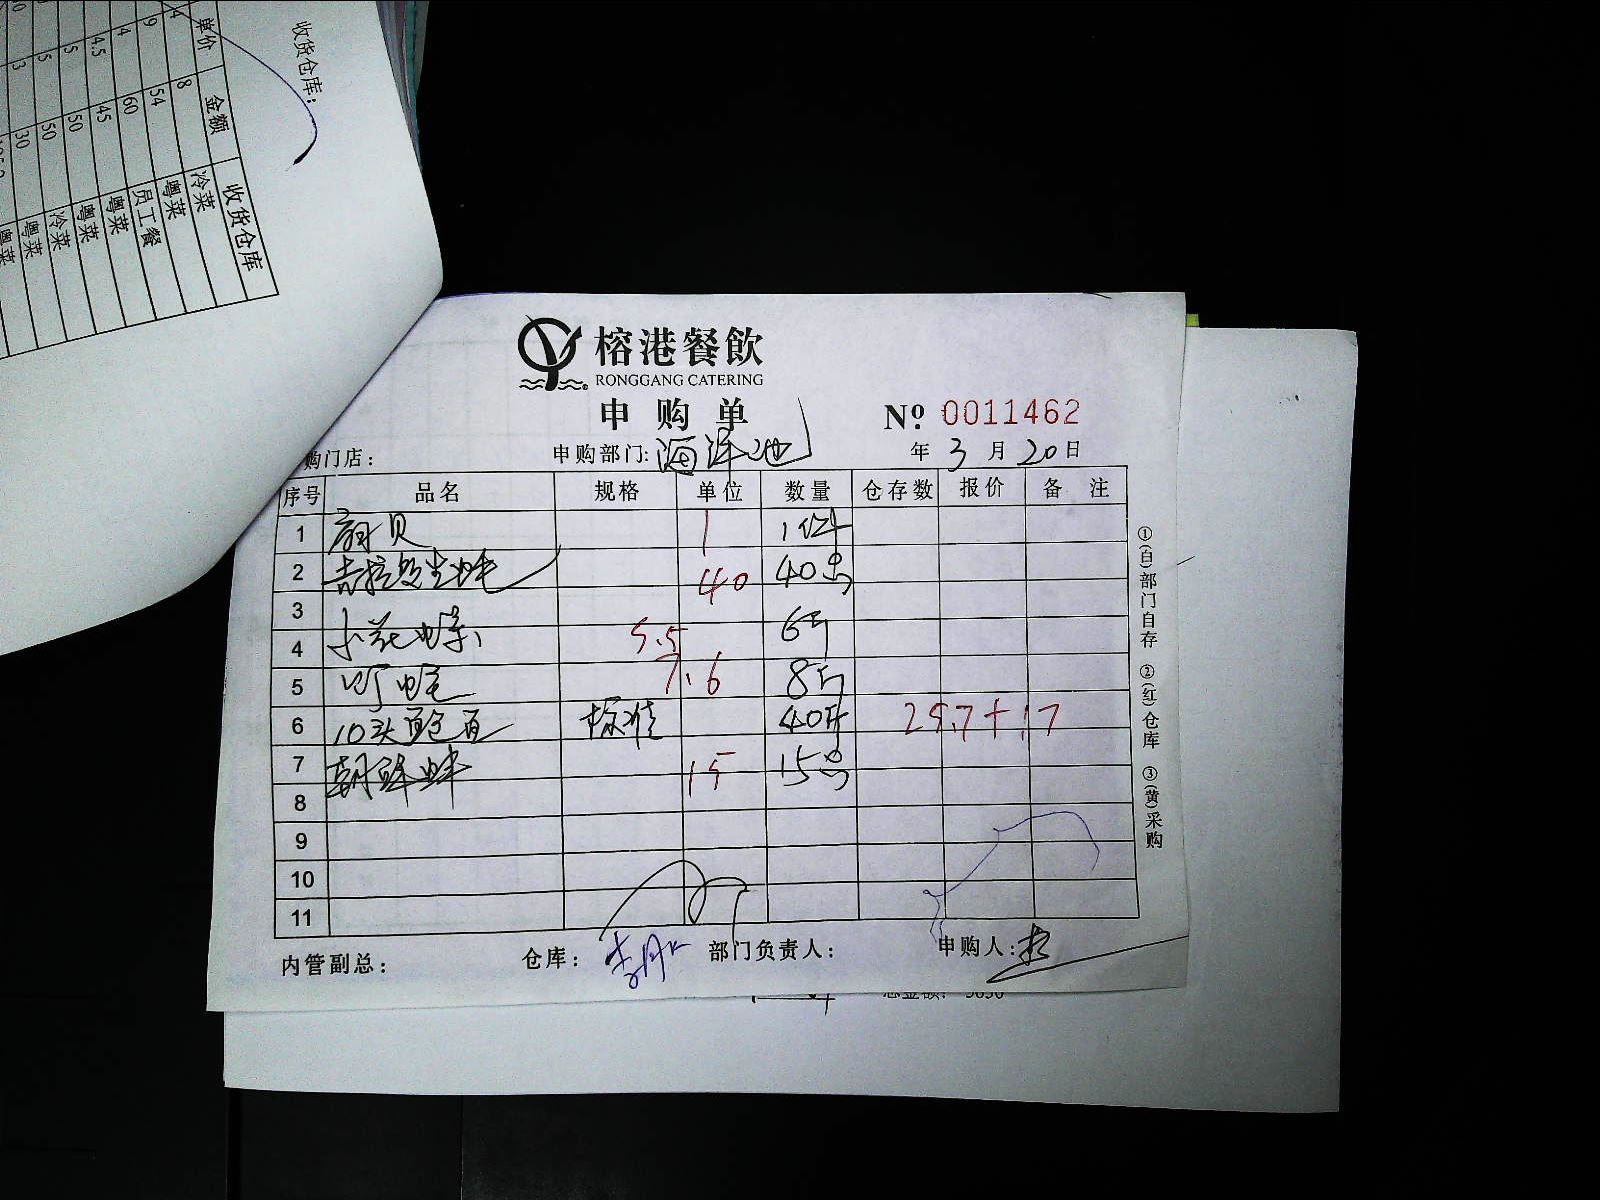 收货仓库:
单价 金额 收货仓库
4 8 冷菜
9 54 粤菜
4 60 员工餐
4.5 45 粤菜
5 50 粤菜
5 50 冷菜
3 30 粤菜
粤菜
榕港餐飲
RONGGANG CATERING
申购单
Nº: 0011462
购门店: 申购部门: 海洋池 年 3 月 20 日
序号 品名 规格 单位 数量 仓存数 报价 备注
1 扇贝 1 1件
2 吉拉多生蚝 40 40只
3
4 小花螺 5.5 6斤
5 8斤 7.6
6 10头鲍 标准 40斤 25.7+17
7 朝鲜蚌 15 15只
8
9
10
11
①(白)部门自存 ②(红)仓库 ③(黄)采购
内管副总: 仓库: 部门负责人: 申购人:
总金额: 3030